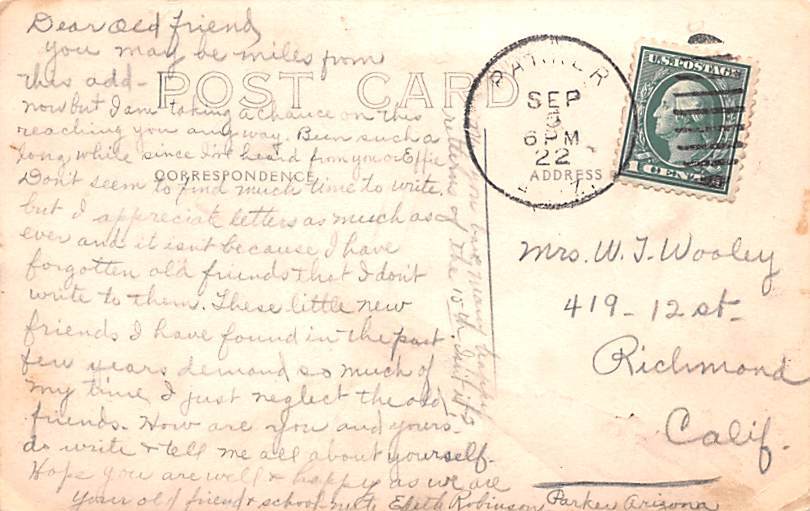 Dear old friend
you may be miles from
this add-
now but I am taking a chance on this
reaching you anyway. Been such a
long while since I've heard from you or Effie
Don't seem to find much time to write.
but I appreciate letters as much as
ever and it isn't because I have
forgotten old friends that I don't
write to them. These little new
friends I have found in the past
few years demand so much of
my time I just neglect the old
friends. How are you and yours.
do write & tell me all about yourself.
Hope you are well & happy as we are
Your old friend & school-mate Edith Robinson Parker Arizona
you many happy
returns of the 15th
POST CARD
CORRESPONDENCE
ADDRESS
PARKER
SEP
6 PM
22
U.S. POSTAGE
1 CENT 1
Mrs. W. T. Wooley
419-12 st-
Richmond
Calif.